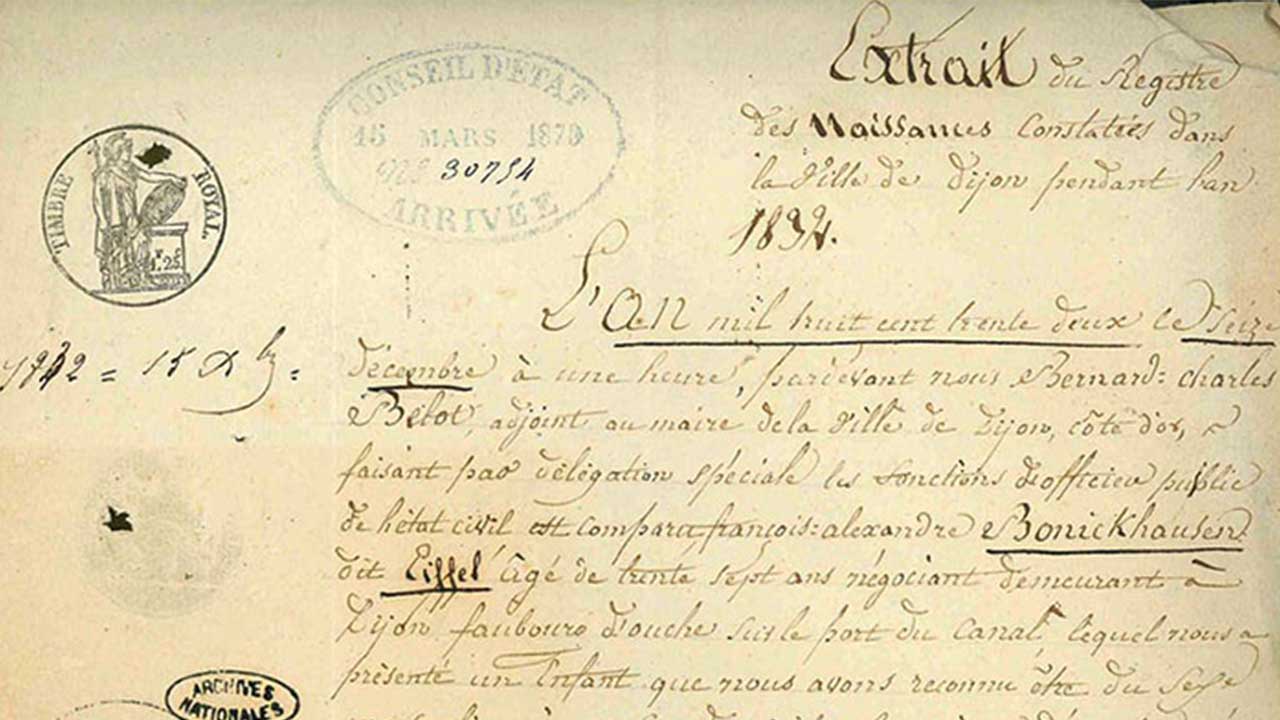 Extrait du Registre
des Naissances Constatées dans
la Ville de Dijon pendant l'an
1832.
CONSEIL D'ÉTAT
15 MARS 1879
30754
ARRIVÉE
TIMBRE ROYAL.
1.25
L'an mil huit cent trente deux le Seize
décembre à une heure, pardevant nous Bernard: charles
Belot, adjoint au maire dela Ville de Dijon, côte d'or,
faisant par délégation spéciale les fonctions d'officier public
de l'état civil est comparu françois: alexandre Bonickhausen
dit Eiffel âgé de trente sept ans négociant demeurant à
Dijon faubourg d'ouche sur le port du Canal, lequel nous a
présenté un Enfant que nous avons reconnu être du Sexe
ARCHIVES
NATIONALES